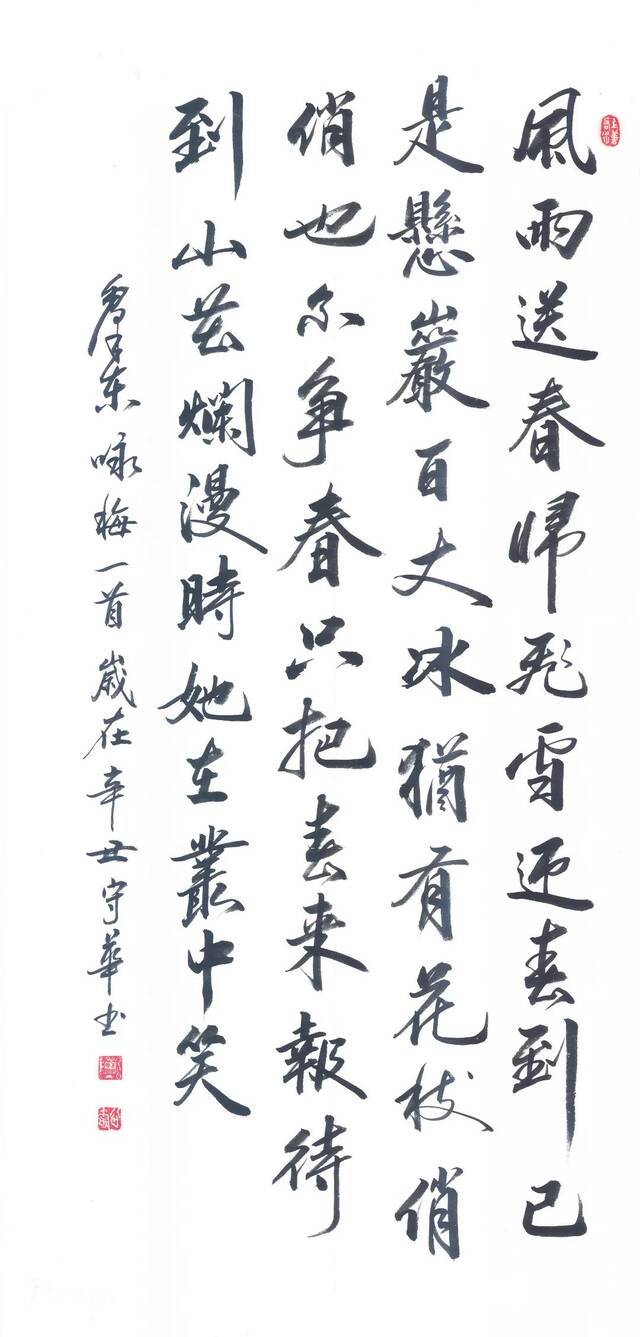 風雨送春帰飛雪迎春到已
是懸巖百丈冰猶有花枝俏
俏也不争春只把春来報待
到山花爛漫時她在叢中笑
澤东咏梅一首歲在辛丑守華书